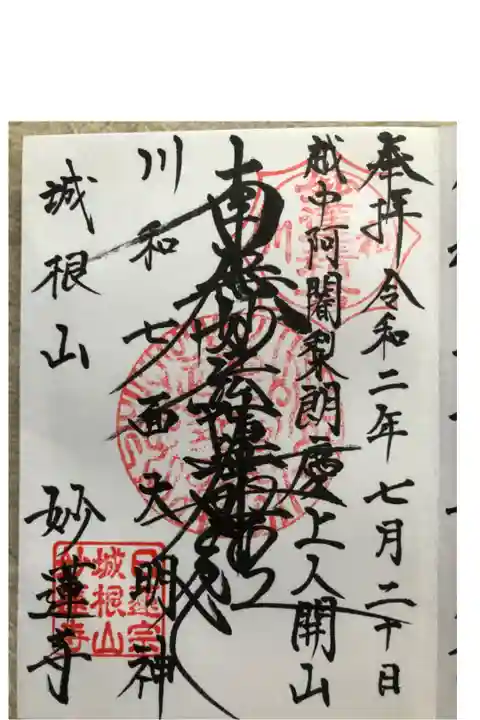 奉拝 令和二年七月二十日
越中阿闍梨朗慶上人開山
南無妙法蓮華経
川和 七面大明神
城根山 妙蓮寺
日蓮宗
城根山
妙蓮寺